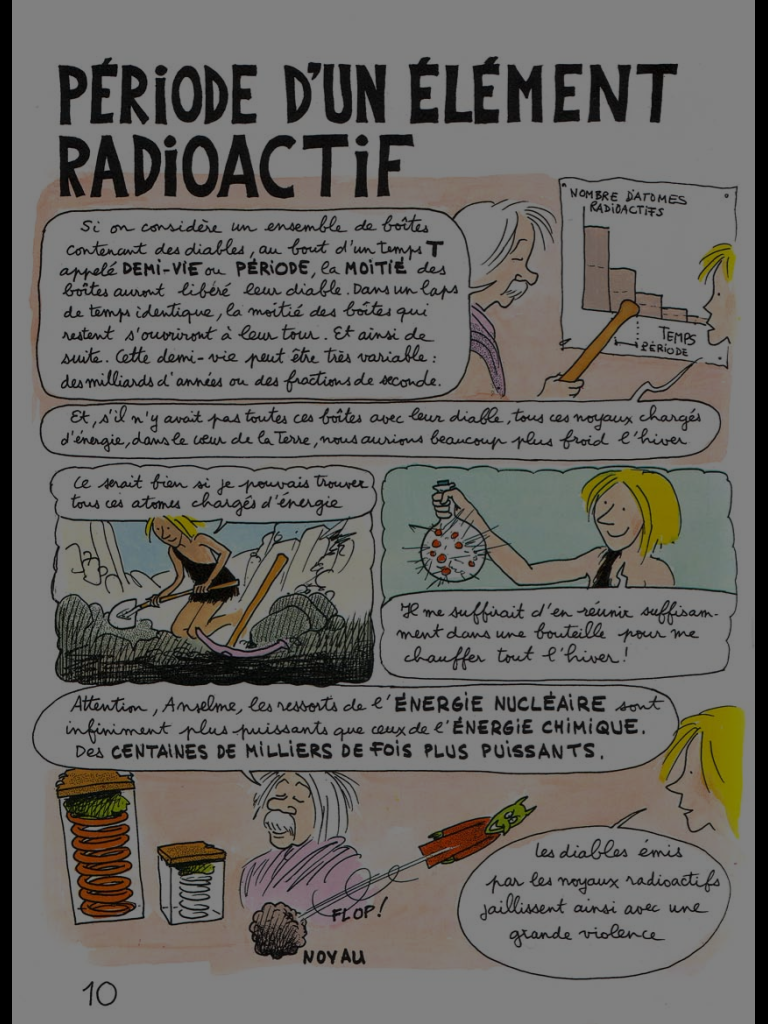 PÉRIODE D'UN ÉLÉMENT
RADIOACTIF
Si on considère un ensemble de boîtes
contenant des diables, au bout d'un temps T
appelé DEMI-VIE ou PÉRIODE, la MOITIÉ des
boîtes auront libéré leur diable. Dans un laps
de temps identique, la moitié des boîtes qui
restent s'ouvriront à leur tour. Et ainsi de
suite. Cette demi-vie peut être très variable :
des milliards d'années ou des fractions de seconde.
NOMBRE D'ATOMES
RADIOACTIFS
TEMPS
PÉRIODE
Et, s'il n'y avait pas toutes ces boîtes avec leur diable, tous ces noyaux chargés
d'énergie, dans le cœur de la Terre, nous aurions beaucoup plus froid l'hiver
Ce serait bien si je pouvais trouver
tous ces atomes chargés d'énergie
Il me suffirait d'en réunir suffisam-
ment dans une bouteille pour me
chauffer tout l'hiver !
Attention, Anselme, les ressorts de l'ÉNERGIE NUCLÉAIRE sont
infiniment plus puissants que ceux de l'ÉNERGIE CHIMIQUE.
Des CENTAINES DE MILLIERS DE FOIS PLUS PUISSANTS.
FLOP !
NOYAU
les diables émis
par les noyaux radioactifs
jaillissent ainsi avec une
grande violence
10